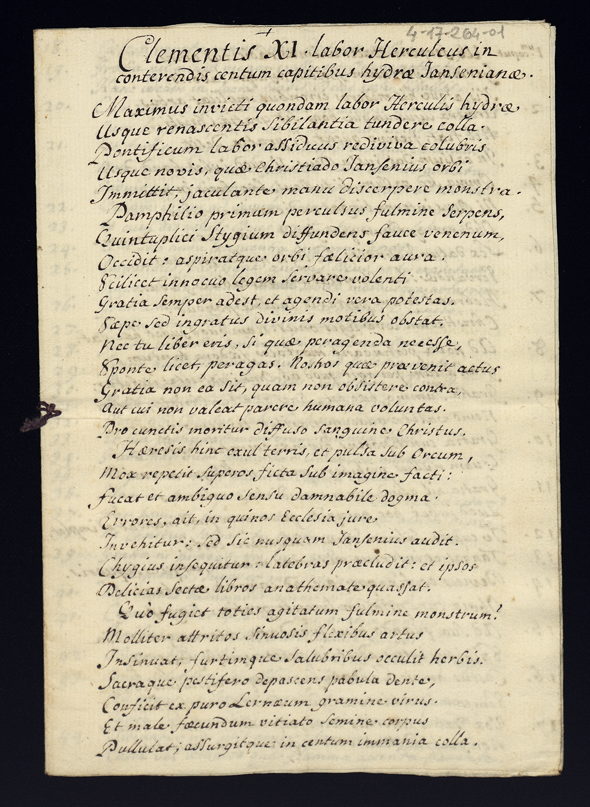 4-17-264-01
+
Clementis XI. labor Herculeus in
conterendis centum capitibus hydræ Iansenianæ.
Maximus invicti quondam labor Herculis hydræ
Usque renascentis sibilantia tundere colla.
Pontificum labor assiduus rediviva colubris
Usque novis, quæ Christiado Iansenius orbi
Immittit, jaculante manu discerpere monstra.
Pamphilio primum perculsus fulmine serpens,
Quintuplici Stygium diffundens fauce venenum,
Occidit: aspiratque orbi fælicior aura.
Scilicet innocuo legem servare volenti
Gratia semper adest, et agendi vera potestas.
Sæpe sed ingratus divinis motibus obstat.
Nec tu liber eris, si quæ peragenda necesse,
Sponte licet peragas. Nostros quæ prævenit actus
Gratia non ea sit, quam non obsistere contra,
Aut cui non valeat parere humana voluntas.
Pro cunctis moritur diffuso sanguine Christus.
Hæresis hinc exul terris, et pulsa sub Orcum,
Mox repetit superos ficta sub imagine facti:
Fucat et ambiguo sensu damnabile dogma.
Errores, ait, in quinos Ecclesia jure
Invehitur: sed sic nusquam Iansenius audit.
Chygius insequitur: latebras præcludit: et ipsos
Delicias sectæ libros anathemate quassat.
Quò fugiet toties agitatum fulmine monstrum?
Molliter attritos sinuosis flexibus artus
Insinuat, furtimque salubribus occulit herbis.
Sacraque pestifero depascens pabula dente,
Conficit ex puro Lernæum gramine virus.
Et male fœcundum vitiato semine corpus
Pullulat, assurgitque in centum immania colla.